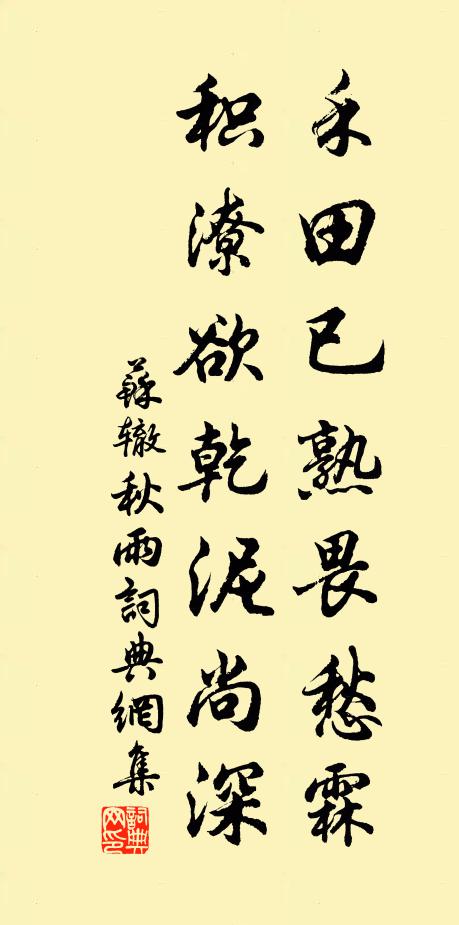 禾田已熟畏愁霖
积潦欲乾泥尚深
蘇辙秋雨詞典網集
詞典网印